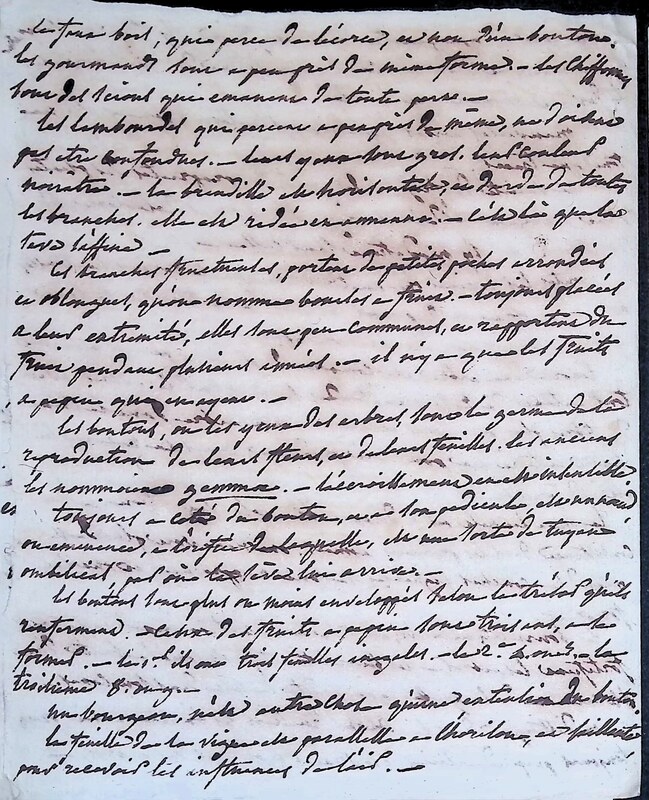 le faux bois, qui perce de l'écorce, et non d'un bouton.
les gourmands sont a peu près de même forme. – les Chiffonnes
sont des scions qui emanent de toute part. –
les lambourdes qui percent a peu près de même, ne doivent
pas etre confondues. – leurs yeux sont gros. leur couleur
noiratre. – la brindille est horisontale, et de toutes
les branches. elle est ridée en anneau. – c'est là que la
seve s'affine –
Ces branches fructueuses, portent de petites poches arrondies
et oblongues, qu'on nomme bourses a fruit. – toujours placées
a leur extremité, elles sont peu communes, et rapportent du
fruit pendant plusieurs années. – il n'y a que les fruits
a pepin qui en ayent. –
les boutons, ou les yeux des arbres, sont le germe de la
reproduction de leurs fleurs, et de leurs feuilles. les anciens
les nommoient gemmae. – l'accroissement en est insensible.
toujours a coté du bouton, et a son pedicule, est un nœud
ou eminence, a l'orifice de laquelle, est une sorte de tuyau
ombilical par où la sève lui arrive. –
les boutons sont plus ou moins enveloppés selon les trésors qu'ils
renferment. – Ceux des fruits a pepin sont trois ans, a se
former. – la 1ere ils ont trois feuilles inegales. – la 2e 4 ou 5. – la
troisieme 8. ou 9. –
un bourgeon, n'est autre chose qu'une extention du bouton.
la feuille de la vigne est parallelle a l'horison, et saillante
pour recevoir les influences de l'air. –